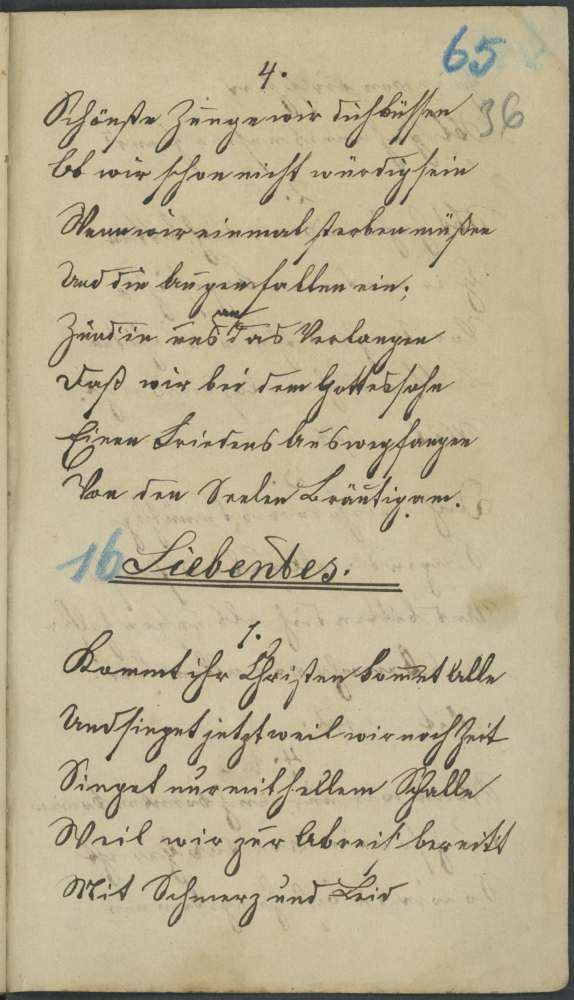 65
36
4.
Schönste Zunge wir dich küssen
Ob wir schon nicht würdig sein
Wenn wir einmal sterben müßen
Und die Augen fallen ein;
Zünd in uns an das Verlangen
Daß wir bei dem Gottessohn
Einen Friedens Kus empfangen
Von den Seelen Bräutigam.
16 Siebentes.
1.
Kommt ihr Christen kommet alle
Und singet jetzt weil wir noch Zeit
Singet nur mit hellem Schalle
Weil wir zur Abreis bereitt
Mit Schmerz und Leid